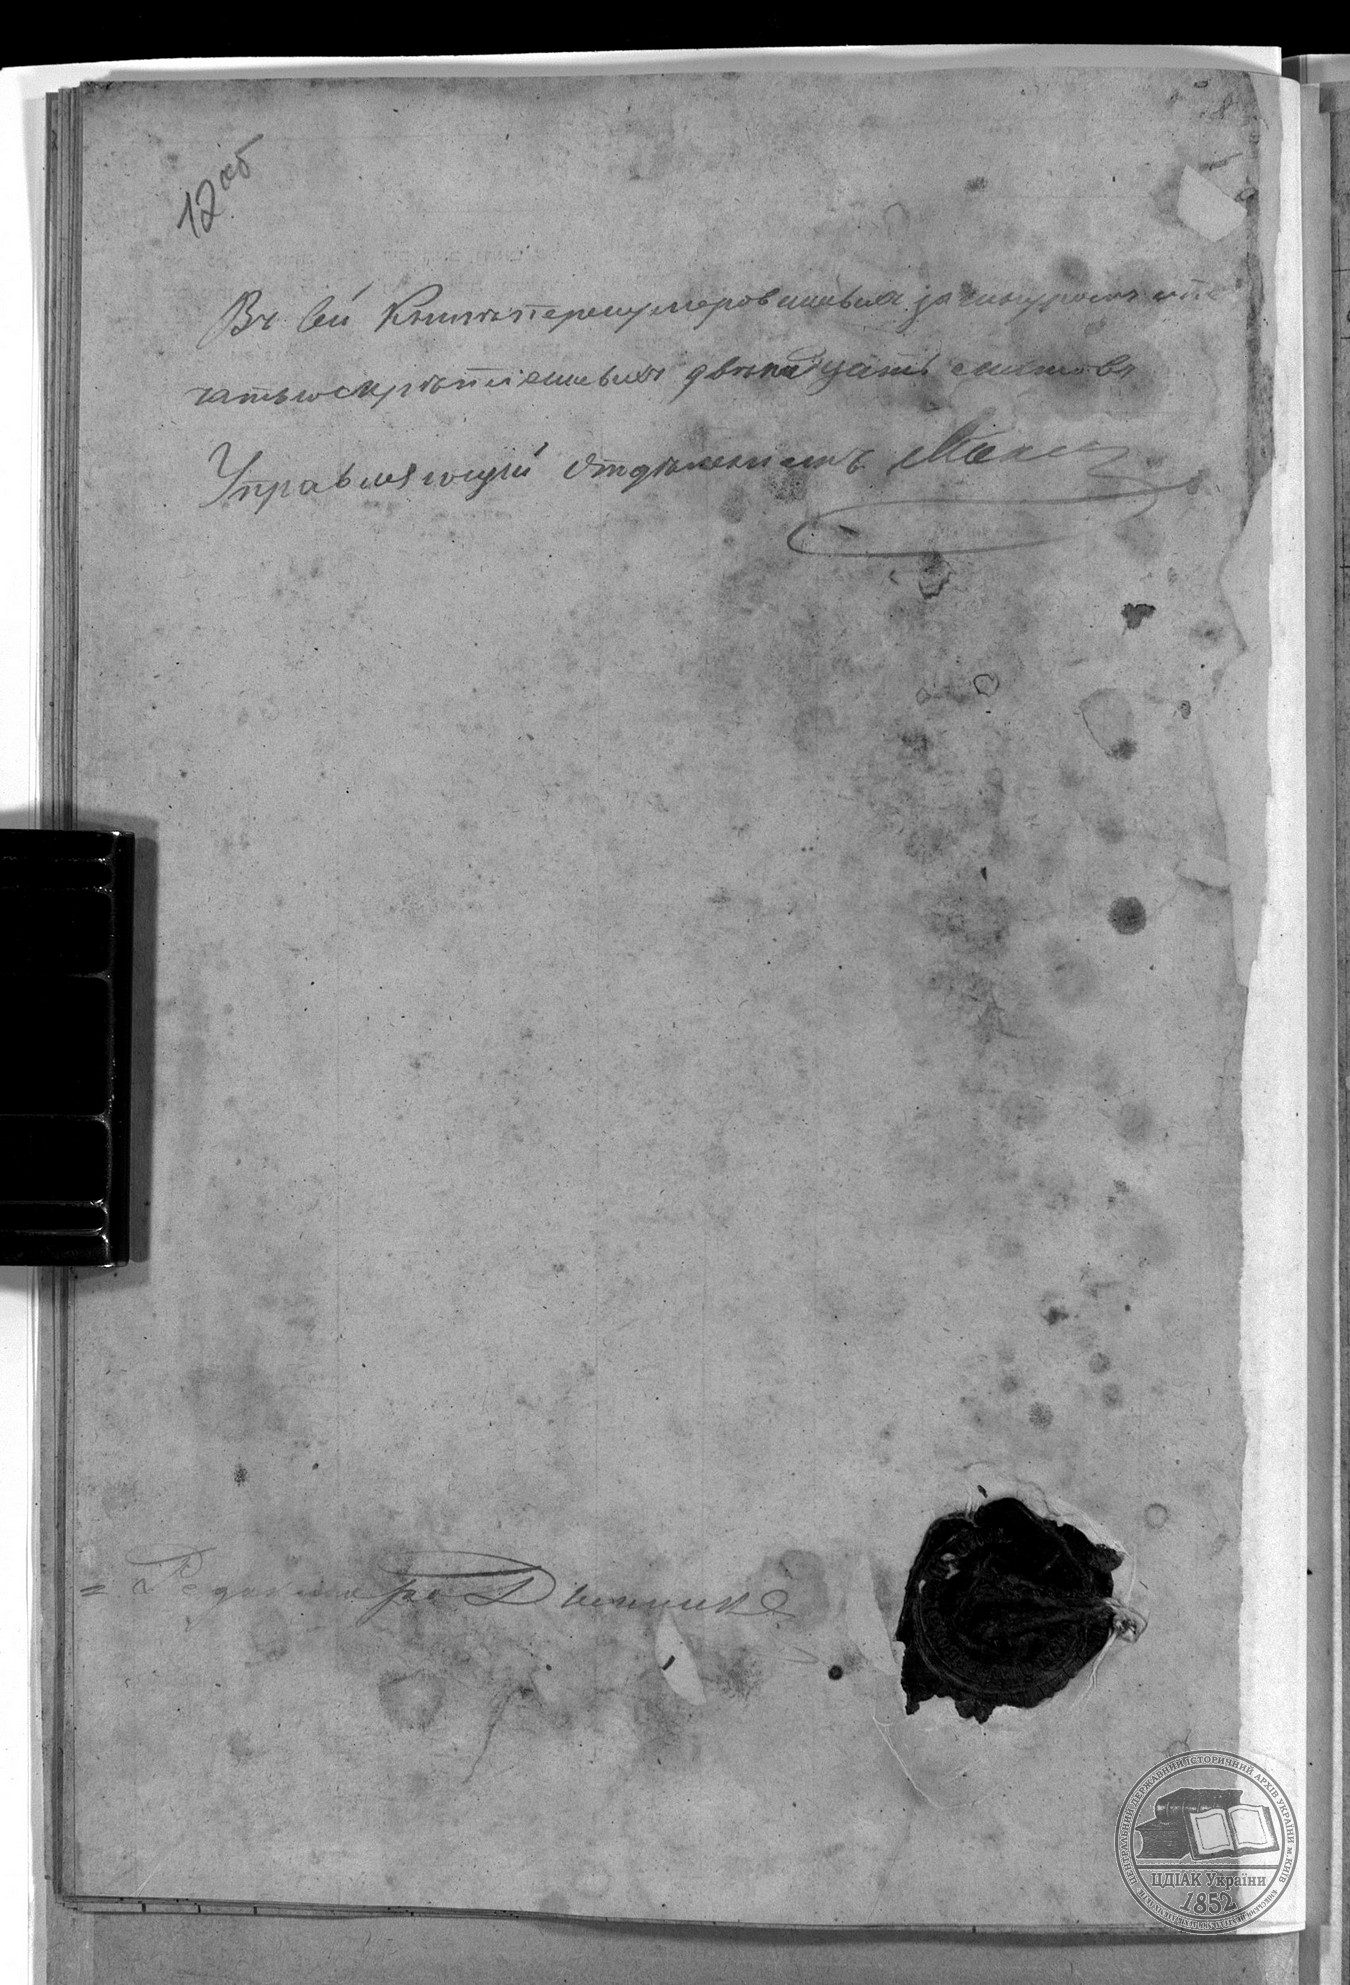 12 об
Въ сей Книгѣ перенумерованныхъ за шнуромъ и пе
чатью скрѣпленныхъ двѣнадцать листовъ
Управляющій Отдѣленіемъ
= Редакторъ
ЦЕНТРАЛЬНИЙ ДЕРЖАВНИЙ ІСТОРИЧНИЙ АРХІВ УКРАЇНИ м.КИЇВ
ЦДІАК України
1852